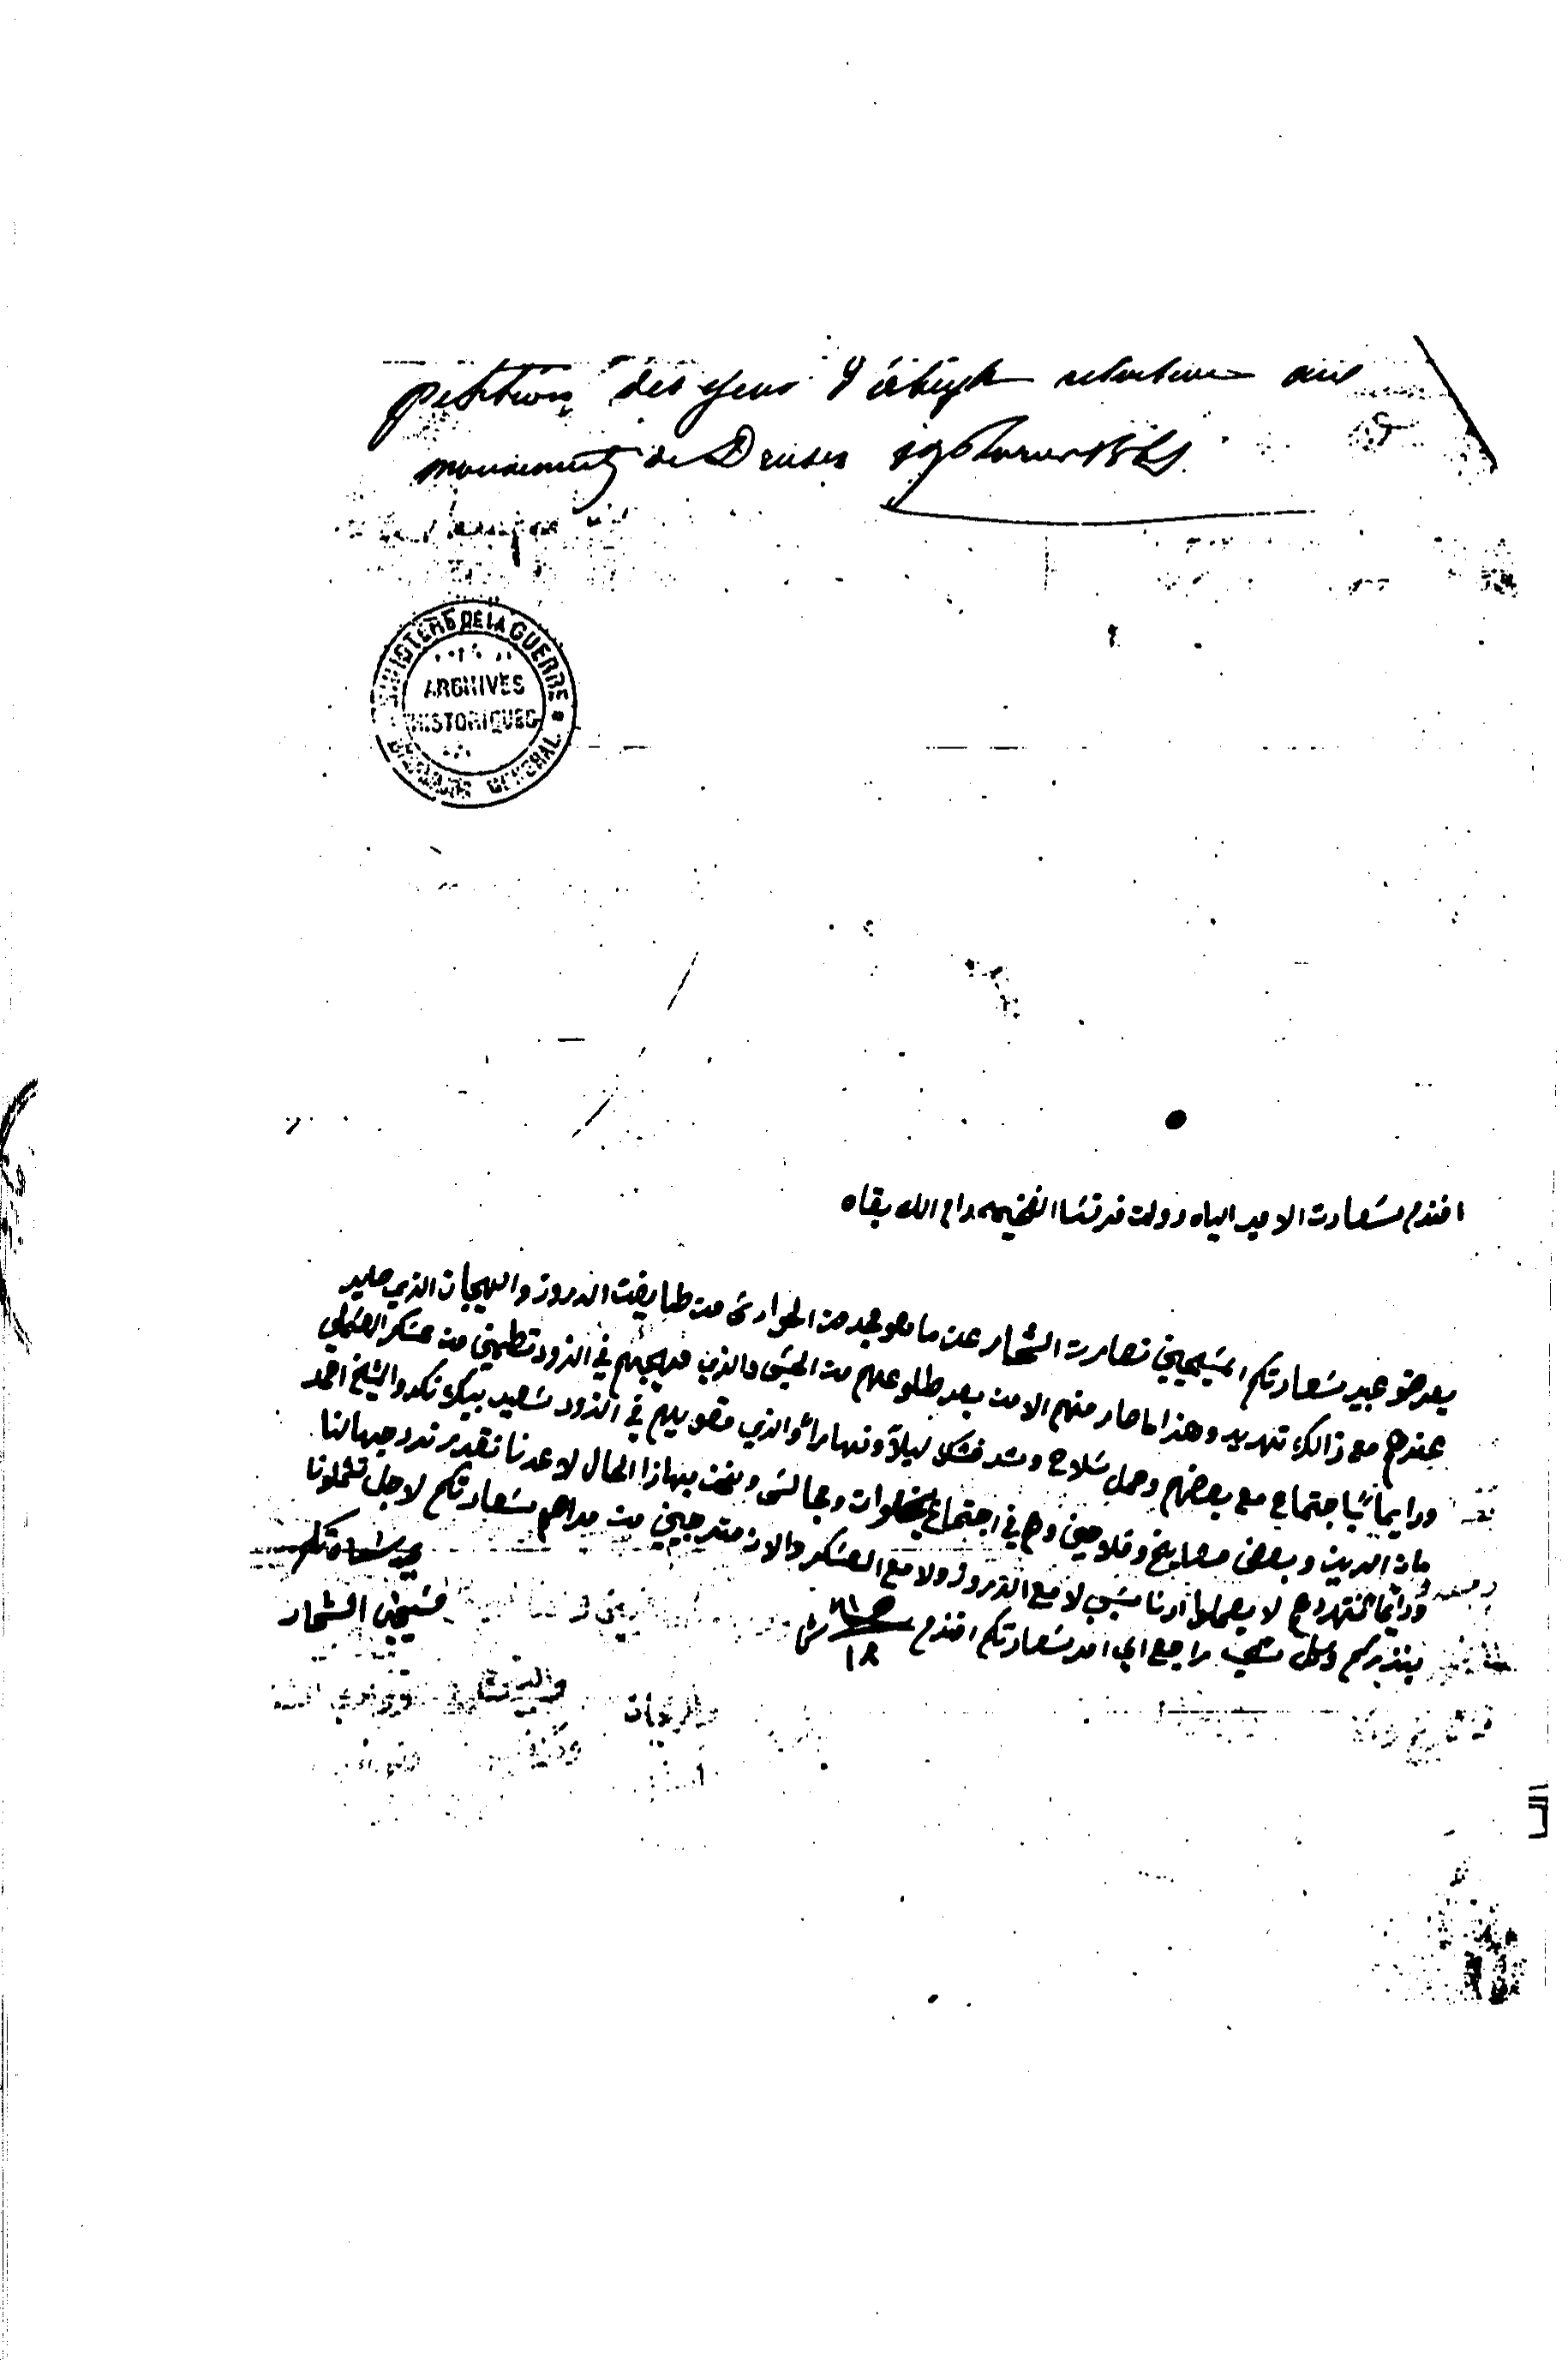 petition des gens d'abeyh relative aux
mouvements de Druses 19 1861
MINISTERE DE LA GUERRE
ARCHIVES
HISTORIQUES
GENERAL
افندم سعادت الامير الياه دولت فرنسا الفخيمه دام الله بقاه
يعرضو عبيد سعادتكم المسيحيين نصارت الشحار عن ما هو مجد من الحوادث من طايفت الدروز والهيجان الذي صاير
عندهم مع ذالك تهديد وهذا ما صار منهم الا من بعد طلوعهم من الحبس والذي مهيجهم في الزود تطمين من عسكر العثملي
ودايماً باجتماع مع بعضهم وحمل سلاح وشد فشك ليلاً ونهاراً والذي مقويلهم في الزود سعيد بيك نكد والشيخ احمد
مان الدين وبعض مشايخ وفلاحين وهم في اجتماع بخلوات ومجالس ونحن بهاذا الحال لا عدنا نقدر ندور جبهالنا
ودايماً نتهددهم لا يعملوا لنا سبب لا مع الدروز ولا مع العسكر والان مترجيين من مراحم سعادتكم لاجل تشملونا
بنظركم وكل شي راجع الي امر سعادتكم افندم
١٨
مسيحيين الشحار